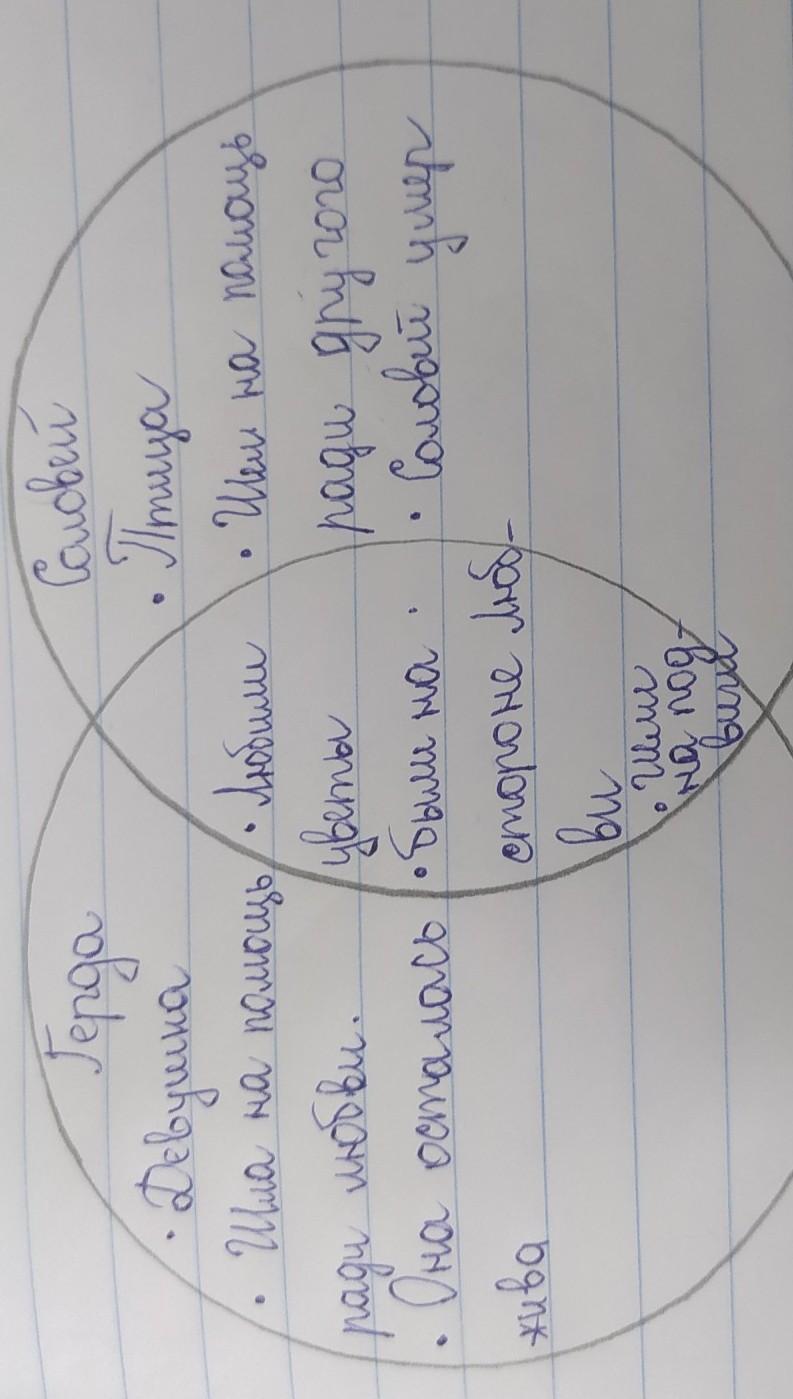 Герда
• Девушка
• Шла на помощь
ради любви.
• Она осталась
жива
• Любили
цветы
• были на
стороне люб-
ви
• Шли
на под-
виги
Соловей
• Птица
• Шли на помощь
ради другого
• Соловей умер